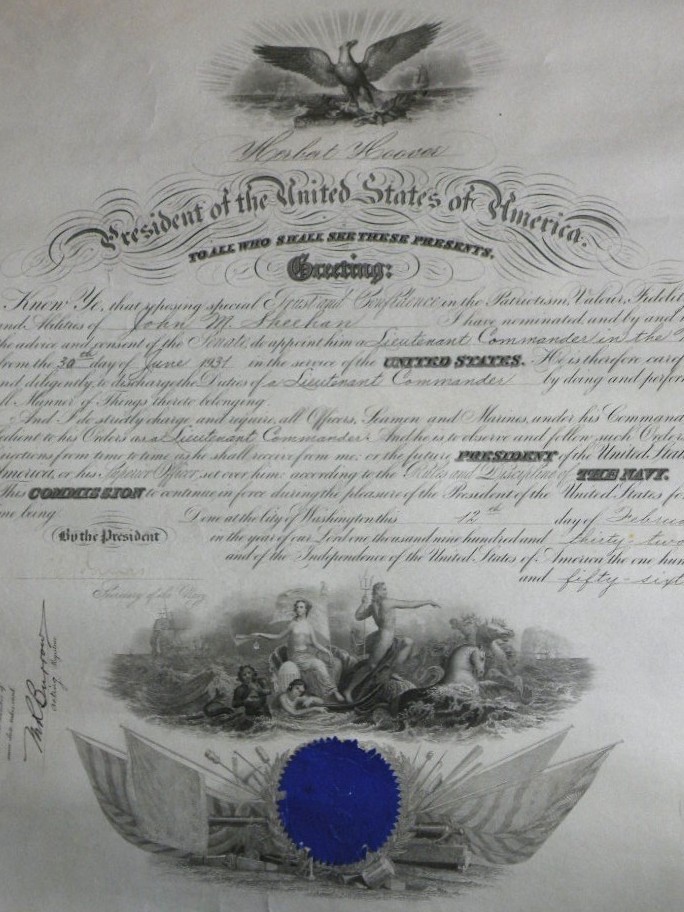 Herbert Hoover
President of the United States of America.
TO ALL WHO SHALL SEE THESE PRESENTS,
Greeting:
Know Ye, that reposing special Trust and Confidence in the Patriotism, Valour, Fidelit
and Abilities of John M. Sheehan I have nominated, and by and
the advice and consent of the Senate, do appoint him a Lieutenant Commander in the
from the 30th day of June 1931 in the service of the UNITED STATES. He is therefore care
nd diligently to discharge the Duties of a Lieutenant Commander by doing and perfor
ll Manner of Things thereto belonging.
And I do strictly charge, and require, all Officers, Seamen and Marines, under his Command
edient to his Orders as a Lieutenant Commander. And he is to observe and follow such Orders
irections from time to time as he shall receive from me, or the future PRESIDENT of the United Stat
America, or his Superior Officer set over him, according to the Rules and Discipline of THE NAVY.
This COMMISSION to continue in force during the pleasure of the President of the United States fo
me being.
Done at the City of Washington this 12th day of Februa
By the President
in the year of our Lord one thousand nine hundred and thirty-two
and of the Independence of the United States of America the one hun
and fifty-sixt
Secretary of the Navy